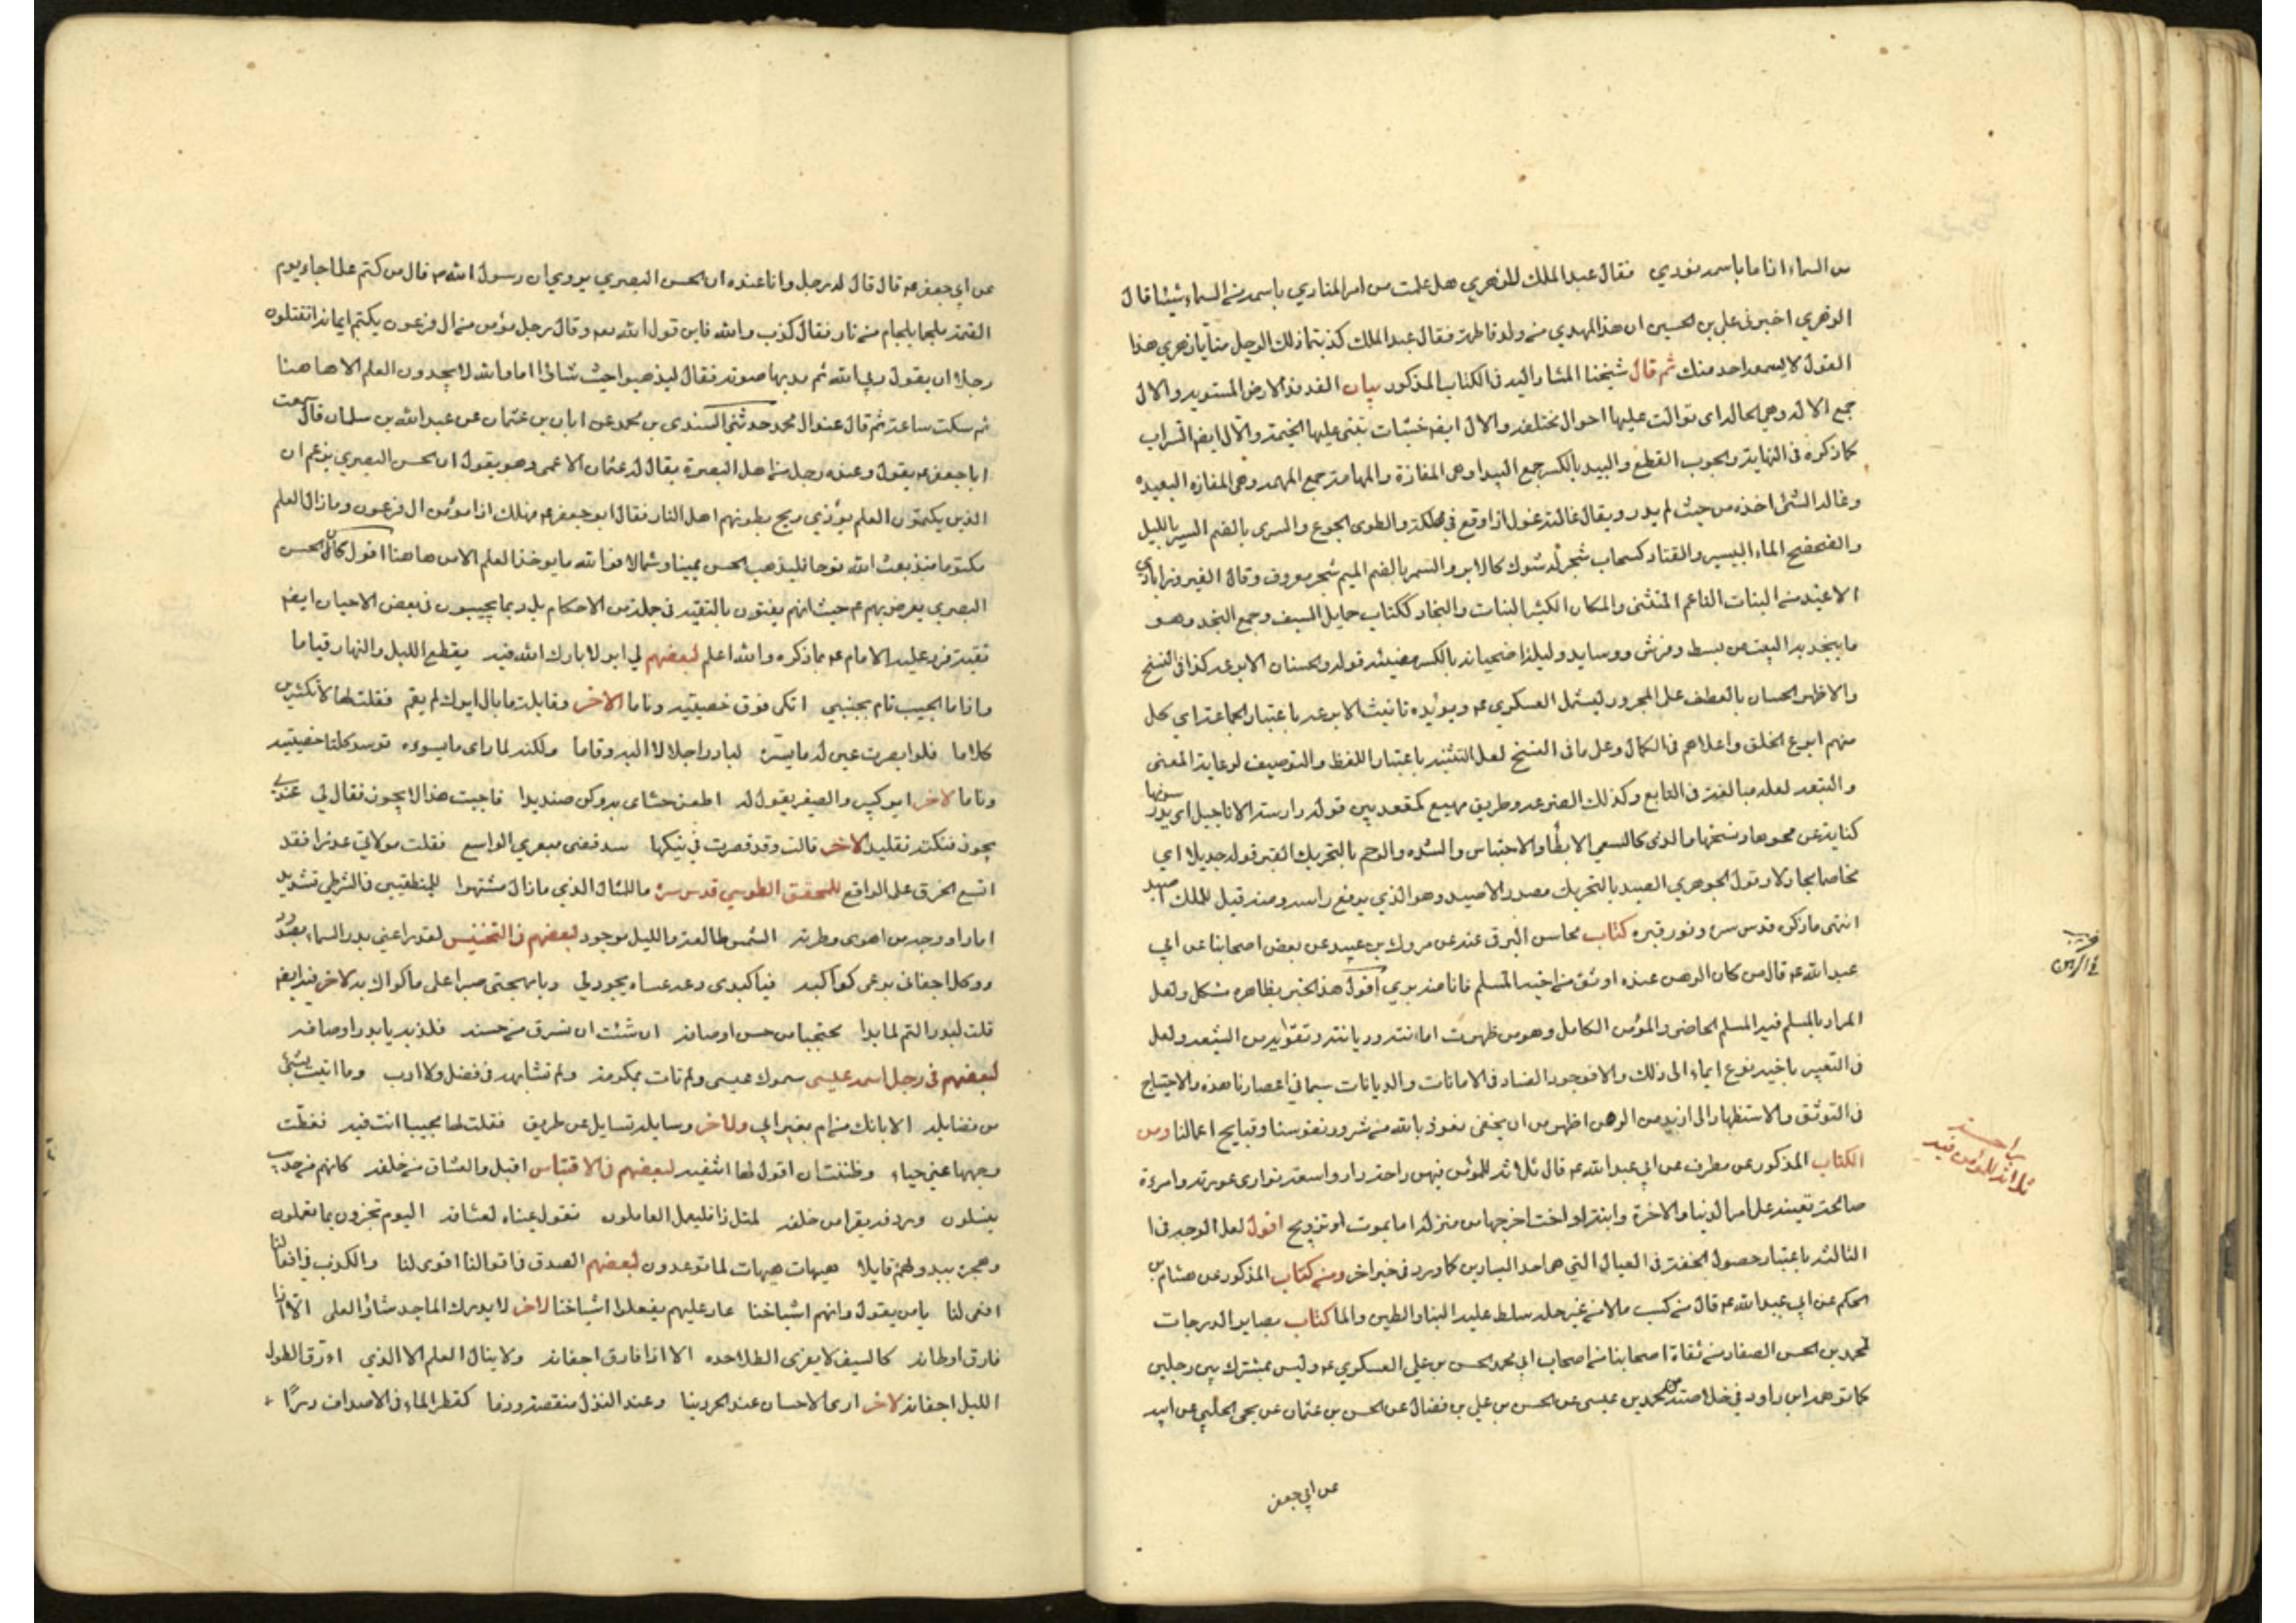 من السماء اذا ما باسمه نودي فقال عبد الملك للزهري هل علمت من امر المنادي باسمه من السماء شيئا قال
الزهري اخبرني علي بن الحسين ان هذا المهدي من ولد فاطمة فقال عبد الملك كذبتما ذلك الرجل منا يا زهري هذا
القول لا يسمعه احد منك ثم قال شيخنا المشار اليه في الكتاب المذكور بيان الفدفد الارض المستوية والال
جمع الالة وهي الحالة اي توالت عليها احوال مختلفة والال ايضا خشبات تبنى عليها الخيمة والال ايضا السراب
كما ذكره في النهاية والجوب القطع والبيد بالكسر جمع البيدا وهي المفازة والمهامه جمع المهمه وهي المفازة البعيده
وغاله الشئ اخذه من حيث لم يدر ويقال غالته غول اذا وقع في مهلكة والطوى الجوع والسرى بالضم السير بالليل
والضحضح الماء اليسير والقتاد كسحاب شجر له شوك كالابر والسمر بالضم الميم شجر معروف وقال الفيروزابادي
الاغيد من النبات الناعم المتثنى والمكان الكثير النبات والنجاد ككتاب حمايل السيف وجمع النجد وهو
ما ينجد به البيت من بسط وفرش ووسايد وليلة اضحيانة بالكسر مضيئة قوله والحسنان الابوعه كذا في النسخ
والاظهر الحسان بالعطف على المجرور ليشمل العسكري عه ويؤيده تانيث الابوعه باعتبار الجماعة اي كل
منهم ابوع الخلق واعلاهم في الكمال وعلى ما في النسخ لعل التثنية باعتبار اللفظ والتوصيف لرعاية المعنى
والتبعه لعله مبالغة في التابع وكذلك المتوعه وطريق مهيع كمقعد بين قوله دارسة الاناجيل اي يدرسونها
كناية عن محوها ونسخها والونى كالسعي الابطأ والاحتباس والشده والوحم بالتحريك القبر قوله جديلا اي
مخاصما مجادلا وقول الجوهري الصيد بالتحريك مصدر الاصيد وهو الذي يرفع راسه ومنه قيل للملك اصيد
انتهى ما ذكره قدس سره ونور قبره كتاب محاسن البرقي عنه عن مروك بن عبيد عن بعض اصحابنا عن ابي
عبد الله عه قال من كان الرهن عنده اوثق من اخيه المسلم فانا منه بري اقول هذا الخبر بظاهره مشكل ولعل
المراد بالمسلم فيه المسلم الخاص والمؤمن الكامل وهو من ظهرت امانته وديانته وتقواه من الشيعه ولعل
في التعبير باخيه نوع ايماء الى ذلك والا فوجود الفساد في الامانات والديانات سيما في اعصارنا هذه والاحتياج
في التوثق والاستظهار الى ازيد من الرهن اظهر من ان يخفى نعوذ بالله من شرور نفوسنا وقبايح اعمالنا ومن
الكتاب المذكور عن مطرف عن ابي عبد الله عه قال ثلاثه للمؤمن فيهن راحة دار واسعة توارى عورته وامرءة
صالحة تعينه على امر الدنيا والاخرة وابنة او اخت اخرجها من منزله اما بموت او تزويج اقول لعل الوجه في ا
الثالثه باعتبار حصول الخفة في العيال التي هي احد اليسارين كما ورد في خبر اخر ومن كتاب المذكور عن هشام بن
الحكم عن ابي عبد الله عه قال من كسب مالا من غير حله سلط عليه البنا والطين والما كتاب بصاير الدرجات
لمحمد بن الحسن الصفار من ثقاة اصحابنا من اصحاب ابي محمد الحسن بن علي العسكري عه وليس بمشترك بين رجلين
كما توهمه ابن داود في خلاصته عن محمد بن عيسى عن الحسن بن علي بن فضال عن الحسن بن عثمان عن يحيى الحلبي عن ابيه
عن ابي جعفر
راحة
ثلاثه للمؤمن فيه
عن ابي جعفر عه قال قال له رجل وانا عنده ان الحسن البصري يروي ان رسول الله ص قال من كتم علما جاء يوم
القيمة ملجما بلجام من نار فقال كذب والله فاين قول الله تعه وقال رجل مؤمن من ال فرعون يكتم ايمانه اتقتلون
رجلا ان يقول ربي الله ثم مد بها صوته فقال ليذهبوا حيث شاؤا اما والله لا يجدون العلم الا هاهنا
ثم سكت ساعة ثم قال عند ال محمد حدثني السندي بن محمد عن ابان بن عثمان عن عبد الله بن سلمان قال سمعت
ابا جعفر عه يقول وعنده رجل من اهل البصرة يقال له عثمان الاعمى وهو يقول ان الحسن البصري يزعم ان
الذين يكتمون العلم يؤذي ريح بطونهم اهل النار فقال ابو جعفر عه فهلك اذا مؤمن ال فرعون وما زال العلم
مكتوما منذ بعث الله نوحا فليذهب الحسن يمينا وشمالا فوالله ما يوخذ العلم الا من هاهنا اقول كان الحسن
البصري يعرض بهم عم حيث انهم يفتون بالتقيه في جملة من الاحكام بل ربما يجيبون في بعض الاحيان ايضا
تقية فرد عليه الامام عه بما ذكره والله اعلم لبعضهم لي ابو لا بارك الله فيه يقطع الليل والنهار قياما
واذا ما الحبيب نام بجنبي اتكى فوق خصيتيه وناما الاخر وقايلة ما بال ايرك لم يقم فقلت لها لا تكثرين
كلاما فلو ابصرت عين له ما يسره لبادر اجلالا اليه وقاما ولكنه لما راى ما يسوءه توسد كلتا خصيتيه
وناما لاخر ايري كبير والصغير يقول له اطعن حشاي به وكن صنديدا فاجبت هذا لا يجوز فقال لي عندي
يجوز فنكته تقليدا لاخر قالت وقد قصرت في نيكها سد فضى ميعري الواسع فقلت مولاتي عذرا فقد
اتسع الخرق على الراقع للمحقق الطوسي قدس سره ما للمثال الذي ما زال مشتهرا للمنطقيين في الشرطي تشديد
اما راوا وجه من اهوى وطرته الشمس طالعة والليل موجود لبعضهم في التجنيس لقد راعني بدر السماء بصده
ووكل اجفاني برعي كواكبه فيا كبدي وعد عساه يجود لي ويا مهجتي صبرا على ما كواك به لاخر فيه ايضا
قلت لبدر التم لما بدا محتجبا من حسن اوصافه ان شئت ان تسرق من حسنه فلذ به يا بدر او صافه
لبعضهم في رجل اسمه عليسى سموك عيسى ولم تات بمكرمة ولم تشابهه في فضل ولا ادب وما اتيت بشئ
من فضايله الا بانك من ام بغير اب ولاخر وسايلة تسايل عن طريق فقلت لها مجيبا انت فيه فغطت
وجهها عني حياء وظنت ان اقول لها اثنيه لبعضهم في الاقتباس اقبل والعشاق من خلفه كانهم من حدب
ينسلون وردفه يقرا من خلفه لمثل ذا فليعمل العاملون تقول عيناه لعشاقه اليوم تجزون بما تعملون
وهجره يبدو لهم قايلا هيهات هيهات لما توعدون لبعضهم الصدق في اقوالنا اقوى لنا والكذب في افعالنا
افعى لنا يا من يقول وانهم اشياخنا عار عليهم يفعلوا اشياخنا لاخر لا يدرك الماجد شاؤ العلى الا اذا
فارق اوطانه كالسيف لا يفري الطلا حده الا اذا فارق اجفانه ولا ينال العلم الا الذي ارق الطول
الليل اجفانه لاخر ارى الاحسان عند الحر دينا وعند النذل منقصة وذما كقطر الماء في الاصداف درًا